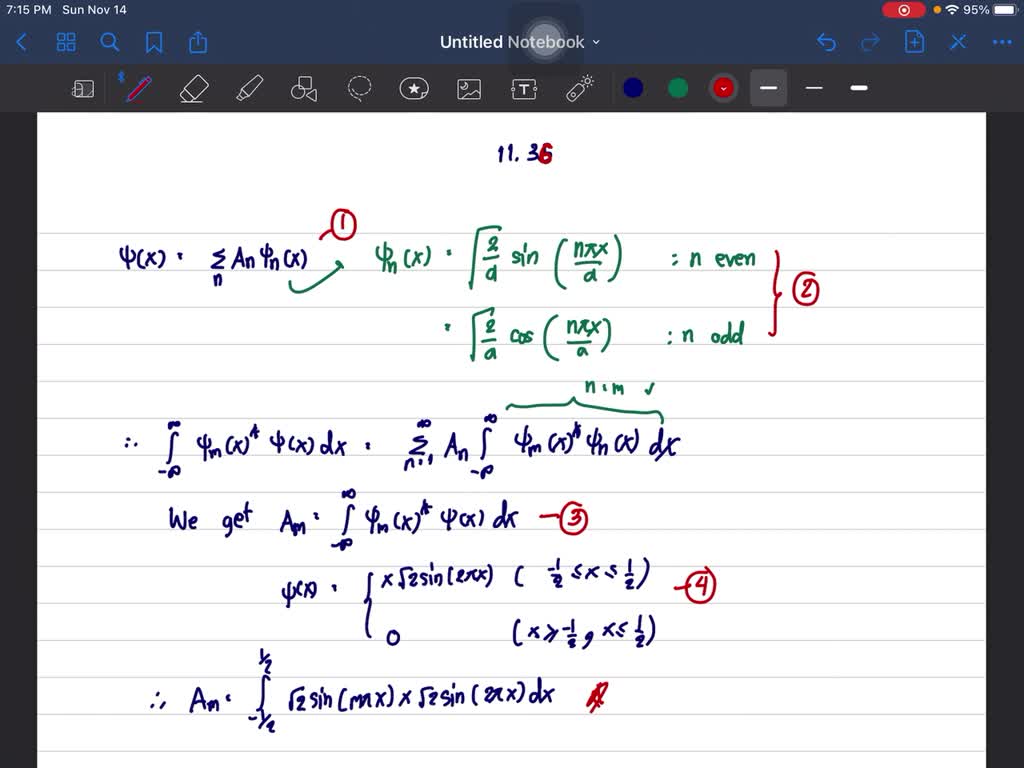 7:15 PM Sun Nov 14 95%
Untitled Notebook
11. 36
ψ(x) = Σ_n An ψn(x) ① ψn(x) = √(2/a) sin (nπx/a) : n even
= √(2/a) cos (nπx/a) : n odd ②
n = m ✓
∴ ∫_{-∞}^{∞} ψm(x)* ψ(x) dx = Σ_{n=1}^{∞} An ∫_{-∞}^{∞} ψm(x)* ψn(x) dx
We get Am = ∫_{-∞}^{∞} ψm(x)* ψ(x) dx — ③
ψ(x) = { x √2 sin(2πx) ( -1/2 ≤ x ≤ 1/2 ) — ④
0 ( x ≥ -1/2 , x ≤ 1/2 )
∴ Am = ∫_{-1/2}^{1/2} √2 sin(mπx) x √2 sin(2πx) dx